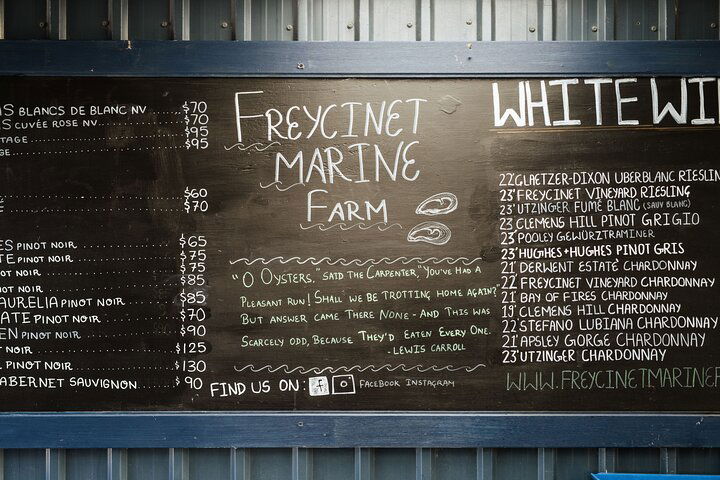 AS BLANCS DE BLANC NV $70
AS CUVÉE ROSE NV $70
TAGE $95
GE $95
E $60
$70
ES PINOT NOIR $65
TE PINOT NOIR $75
OT NOIR $75
NOT NOIR $85
AURELIA PINOT NOIR $85
ATE PINOT NOIR $70
EN PINOT NOIR $90
T NOIR $125
L PINOT NOIR $130
ABERNET SAUVIGNON $90
FREYCINET
MARINE
FARM
"O OYSTERS," SAID THE CARPENTER, "YOU'VE HAD A
PLEASANT RUN! SHALL WE BE TROTTING HOME AGAIN?"
BUT ANSWER CAME THERE NONE - AND THIS WAS
SCARCELY ODD, BECAUSE THEY'D EATEN EVERY ONE.
-LEWIS CARROLL
FIND US ON: f FACEBOOK INSTAGRAM
WHITE WI
22' GLAETZER-DIXON UBERBLANC RIESLIN
23' FREYCINET VINEYARD RIESLING
23' UTZINGER FUMÉ BLANC (SAUV BLANC)
23 CLEMENS HILL PINOT GRIGIO
23 POOLEY GEWÜRZTRAMINER
23' HUGHES + HUGHES PINOT GRIS
21' DERWENT ESTATE CHARDONNAY
22' FREYCINET VINEYARD CHARDONNAY
21' BAY OF FIRES CHARDONNAY
19' CLEMENS HILL CHARDONNAY
22' STEFANO LUBIANA CHARDONNAY
21' APSLEY GORGE CHARDONNAY
23' UTZINGER CHARDONNAY
WWW.FREYCINETMARINEF